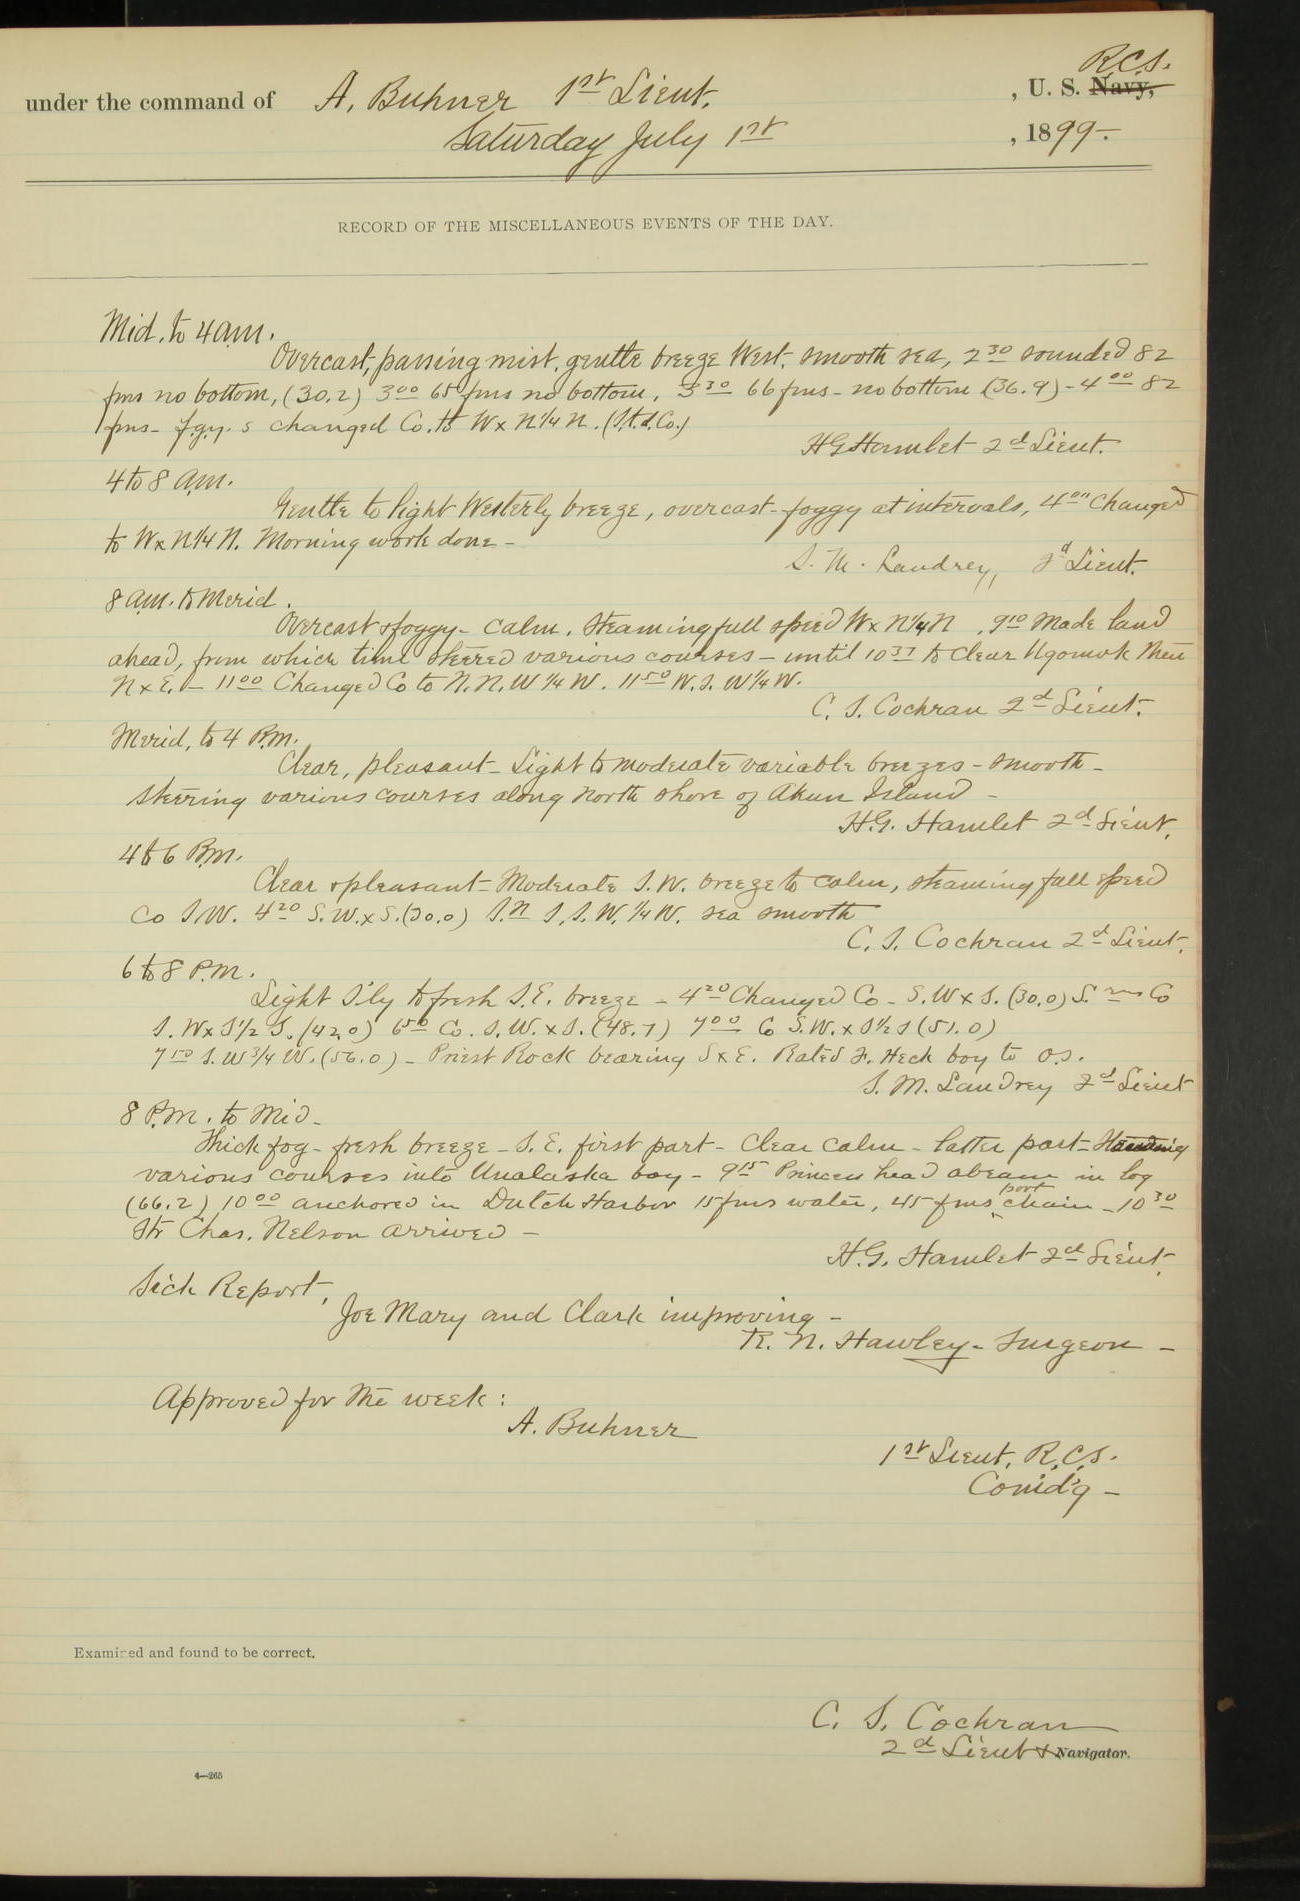 R.C.S.
under the command of A. Buhner 1st Lieut. , U. S. Navy,
Saturday July 1st , 1899-.
RECORD OF THE MISCELLANEOUS EVENTS OF THE DAY.
Mid. to 4 a.m.
Overcast, passing mist, gentle breeze West, smooth sea, 2 30 sounded 82
fms no bottom, (30.2) 3 00 65 fms no bottom, 3 30 66 fms - no bottom (36.9) - 4 00 82
fms - f.g.y. s changed Co. to W x N 1/4 N. (S.t.d. Co.)
H G Hamlet 2d Lieut.
4 to 8 a.m.
Gentle to light Westerly breeze, overcast - foggy at intervals, 4 00 Changed
to W x N 1/4 N. Morning work done -
S. M. Landrey, 2d Lieut.
8 a.m. to Merid.
Overcast & foggy - calm. Steaming full speed W x N 1/4 N . 9 10 Made land
ahead, from which time steered various courses - until 10 37 to clear Ugomok then
N x E. - 11 00 Changed Co to N. N. W 1/4 W. 11 50 W. S. W 1/4 W.
C. S. Cochran 2d Lieut.
Merid, to 4 P.m.
Clear, pleasant - Light to moderate variable breezes - smooth -
steering various courses along north shore of Akun Island -
H.G. Hamlet 2d Lieut.
4 to 6 P.m.
Clear & pleasant - Moderate S.W. breeze to calm, steaming full speed
Co S.W. 4 20 S.W. x S. (30.0) S. S. W. 1/4 W. sea smooth
C. S. Cochran 2d Lieut.
6 to 8 P.M.
Light S'ly to fresh S.E. breeze - 4 20 Changed Co - S.W x S. (30.0) Co
S. W x S 1/2 S. (42.0) 6 50 Co. S. W. x S. (48.7) 7 00 Co S.W. x S 1/2 S (51.0)
7 50 S. W 3/4 W. (56.0) - Priest Rock bearing S x E. Rated F. Heck boy to O.S.
S. M. Landrey 2d Lieut
8 P.M. to Mid -
Thick fog - fresh breeze - S.E. first part - Clear calm - latter part - Standing
various courses into Unalaska bay - 9 15 Princess head abeam in log
(66.2) 10 00 anchored in Dutch Harbor 15 fms water, 45 fms port chain - 10 30
Str Chas. Nelson arrived -
H.G. Hamlet 2d Lieut.
Sick Report,
Joe Mary and Clark improving -
R. N. Hawley - Surgeon -
Approved for the week:
A. Buhner
1st Lieut. R.C.S.
Com'd'g -
Examined and found to be correct.
C. S. Cochran
2d Lieut & Navigator.
4—265